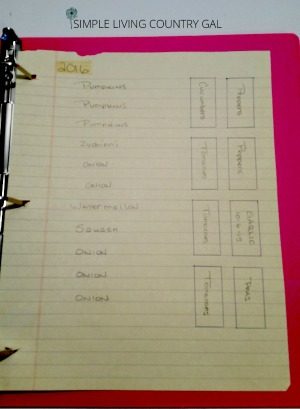 SIMPLE LIVING COUNTRY GAL
2016
Pumpkins
Pumpkins
Pumpkins
Zuchinni
Onion
Onion
Watermellon
Squash
Onion
Onion
Onion
Cucumbers
Peppers
Tomatoes
Peppers
Tomatoes
GARLIC
Tomatoes
Peas